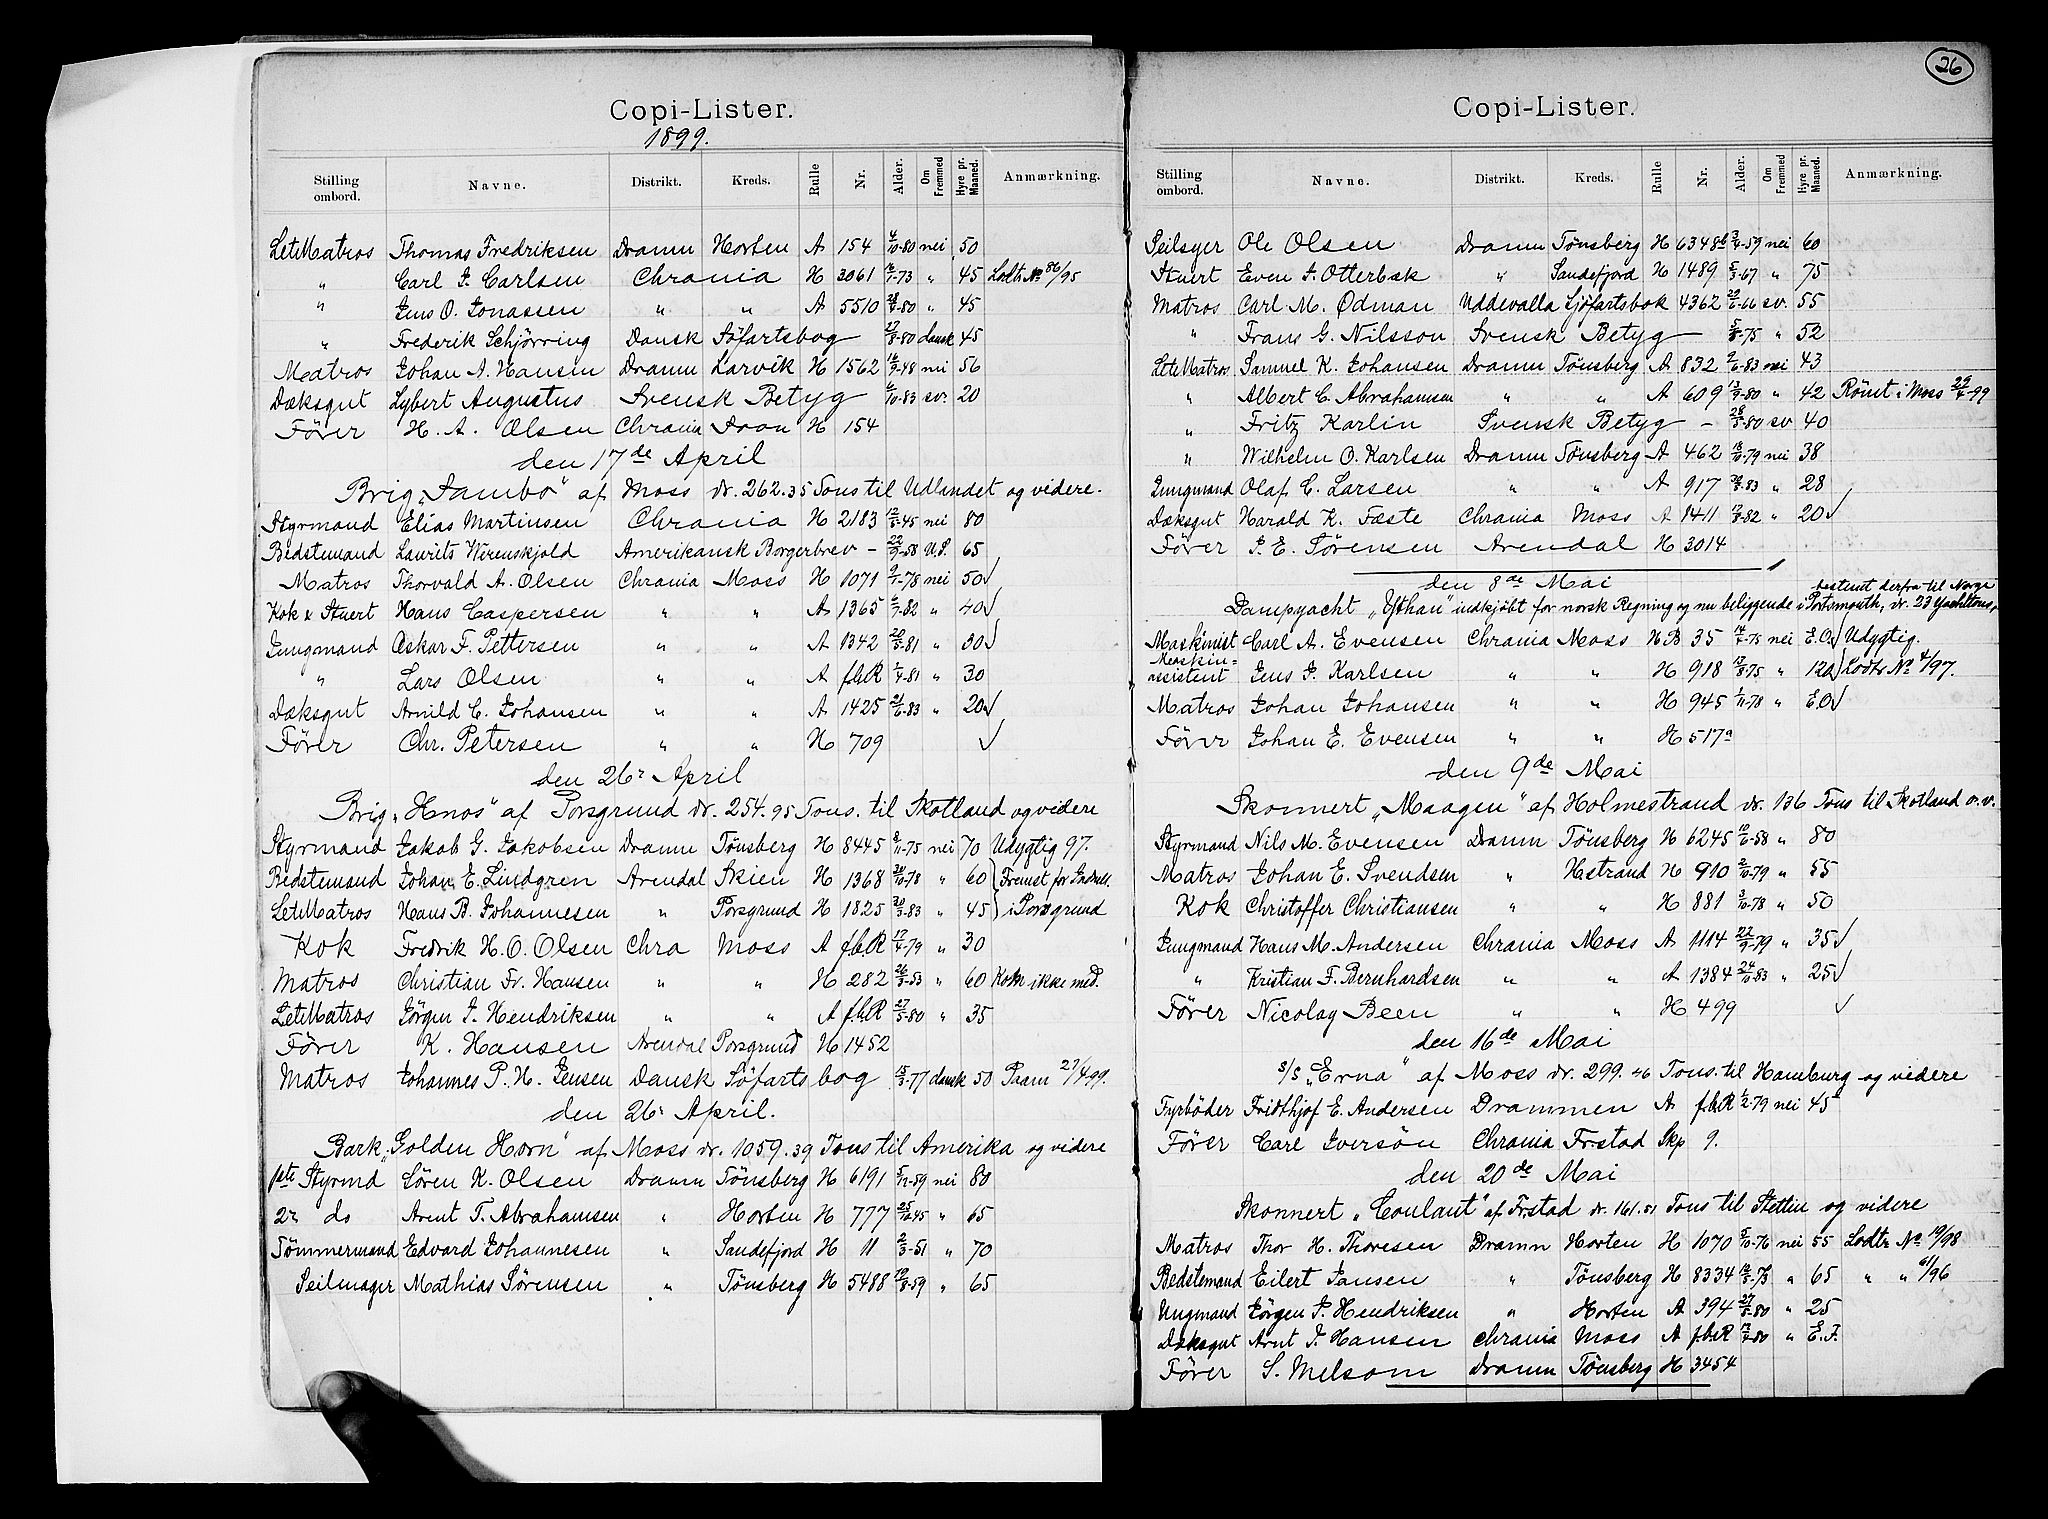 Copi-Lister.
1899.
Stilling ombord. Navne. Distrikt. Kreds. Rulle Nr. Alder. Om Fremmed Hyre pr. Maaned. Anmærkning.
LetMatros Thomas Fredriksen Dramn Horten A 154 4/10-80 nei 50
" Carl J. Carlsen Chrania H 3061 -73 " 45 Lodts No 86/95
" Jens O. Jonassen " " A 5510 28/8-80 " 45
" Frederik Schjørring Dansk Søfartsbog 27/8-80 dansk 45
Matros Johan A. Hansen Dramn Larvik H 1562 16/9-48 nei 56
Dæksgut Lybert Augustus Svensk Betyg 6/10-83 sv. 20
Fører H. A. Olsen Chrania H 154
den 17de April
Brig "Sambo" af Moss dr. 262.35 Tons til Udlandet og videre.
Styrmand Elias Martinsen Chrania H 2183 12/5-45 nei 80
Bedstemand Laurits Werenskjold Amerikansk Borgerbrev - 22/9-58 U.S. 65
Matros Thorvald A. Olsen Chrania Moss H 1071 9/1-78 nei 50 √
Kok & Stuert Hans Caspersen " " A 1365 6/7-82 " 40 √
Jungmand Oskar F. Pettersen " " A 1342 20/5-81 " 30 √
" Lars Olsen " " A f.b.R 1/4-81 " 30
Dæksgut Arnild C. Johansen " " A 1425 21/6-83 " 20 √
Fører Chr. Petersen " " H 709 √
den 26. April
Brig "Hnos" af Porsgrund dr. 254.95 Tons. til Skotland og videre
Styrmand Jakob G. Jakobsen Dramn Tønsberg H 8445 8/11-75 nei 70 Udygtig 97.
Bedstemand Johan E. Lindgren Arendal Skien H 1368 20/10-78 " 60 } Fremst for Indrull.
LetMatros Hans B. Johannesen " Porsgrund H 1825 20/3-83 " 45 } i Porsgrund
Kok Fredrik H. O. Olsen Chra Moss A f.b.R 17/4-79 " 30
Matros Christian Fr. Hansen " " H 282 26/3-53 " 60 Kom ikke med.
LetMatros Jørgen J. Hendriksen " " A f.b.R 27/5-80 " 35
Fører K. Hansen Arendal Porsgrund H 1452
Matros Johannes P. H. Jensen Dansk Søfartsbog 15/3-77 dansk 50 Paam 27/4-99.
den 26. April.
Bark "Golden Horn" af Moss dr. 1059.39 Tons til Amerika og videre
1ste Styrmd Søren K. Olsen Dramn Tønsberg H 6191 5/12-59 nei 80
2n do Arent T. Abrahamsen " Horten H 777 25/10-45 " 65
Tømmermand Edvard Johannesen " Sandefjord H 11 2/3-51 " 70
Seilmager Mathias Sørensen " Tønsberg H 5488 19/8-59 " 65
26
Copi-Lister.
Stilling ombord. Navne. Distrikt. Kreds. Rulle Nr. Alder. Om Fremmed Hyre pr. Maaned. Anmærkning.
Seilsyer Ole Olsen Dramn Tønsberg H 6348b 3/4-59 nei 60
Stuert Even J. Otterbæk " Sandefjord H 1489 5/3-67 " 75
Matros Carl M. Ødman Uddevalla Sjöfartsbok 4362 29/6-66 sv. 55
" Frans G. Nilsson Svensk Betyg 5/8-75 " 52
LetMatros Samuel K. Johansen Dramn Tønsberg A 832 2/6-83 nei 43
" Albert C. Abrahamsen " " A 609 13/9-80 " 42 Rømt i Moss 29/4-99
" Fritz Karlin Svensk Betyg - 28/5-80 sv 40
" Wilhelm O. Karlsen Dramn Tønsberg A 462 18/10-79 nei 38
Jungmand Olaf C. Larsen " " A 917 -83 " 28
Dæksgut Harald K. Fæste Chrania Moss A 1411 17/8-82 " 20 √
Fører P. E. Sørensen Arendal H 3014
den 8de Mai
bestemt derfra til Norge
Dampyacht "Ysthan" indkjøbt for norsk Regning og nu beliggende i Portsmouth, dr. 23 Yachttons.
Maskinist Carl A. Evensen Chrania Moss H.B 35 14/4-75 nei E.O. √ Udygtig.
Maskin-
assistent Jens J. Karlsen " " H 918 17/8-75 " 120 √ Lodts No 4/97.
Matros Johan Johansen " " H 945 1/11-78 " E.O √
Fører Johan E. Evensen " " H 517a
den 9de Mai
Skonnert "Maagen" af Holmestrand dr. 136 Tons til Skotland o.v.
Styrmand Nils M. Evensen Dramn Tønsberg H 6245 10/6-58 " 80
Matros Johan E. Svendsen " Hstrand H 910 2/10-79 " 55
Kok Christoffer Christiansen " " H 881 3/10-78 " 50
Jungmand Hans M. Andersen Chrania Moss A 1114 22/9-79 " 35 √
" Kristian F. Bernhardsen " " A 1384 24/10-83 " 25 √
Fører Nicolay Been " " H 499 √
den 16de Mai
s/s "Erna" af Moss dr. 299.46 Tons. til Hamburg og videre
Fyrbøder Fridthjof E. Andersen Drammen A f.b.R 1/2-79 nei 45
Fører Carl Iversøn Chrania Frstad Skp 9.
den 20de Mai
Skonnert "Coulant" af Frstad dr. 161.51 Tons til Stettin og videre
Matros Thor H. Thoresen Dramn Horten H 1070 5/10-76 nei 55 Lodtr No 19/98
Bedstemand Eilert Jansen " Tønsberg H 8334 16/5-73 " 65 " " 61/96
Ungmand Jørgen J. Hendriksen " Horten A 394 27/5-80 " 25
Dæksgut Arnt J. Hansen Chrania Moss A f.b.R -80 " E.F.
Fører S. Melsom Dramn Tønsberg H 3454